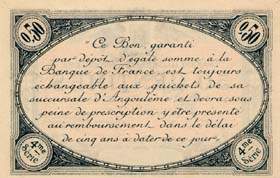 0,50
0,50
"Ce Bon, garanti
par dépôt d'égale somme à la
Banque de France, est toujours
échangeable aux guichets de sa
succursale d'Angoulême et devra sous
peine de prescription y être présenté
au remboursement dans le délai
de cinq ans à dater de ce jour."
4me Série
4me Série